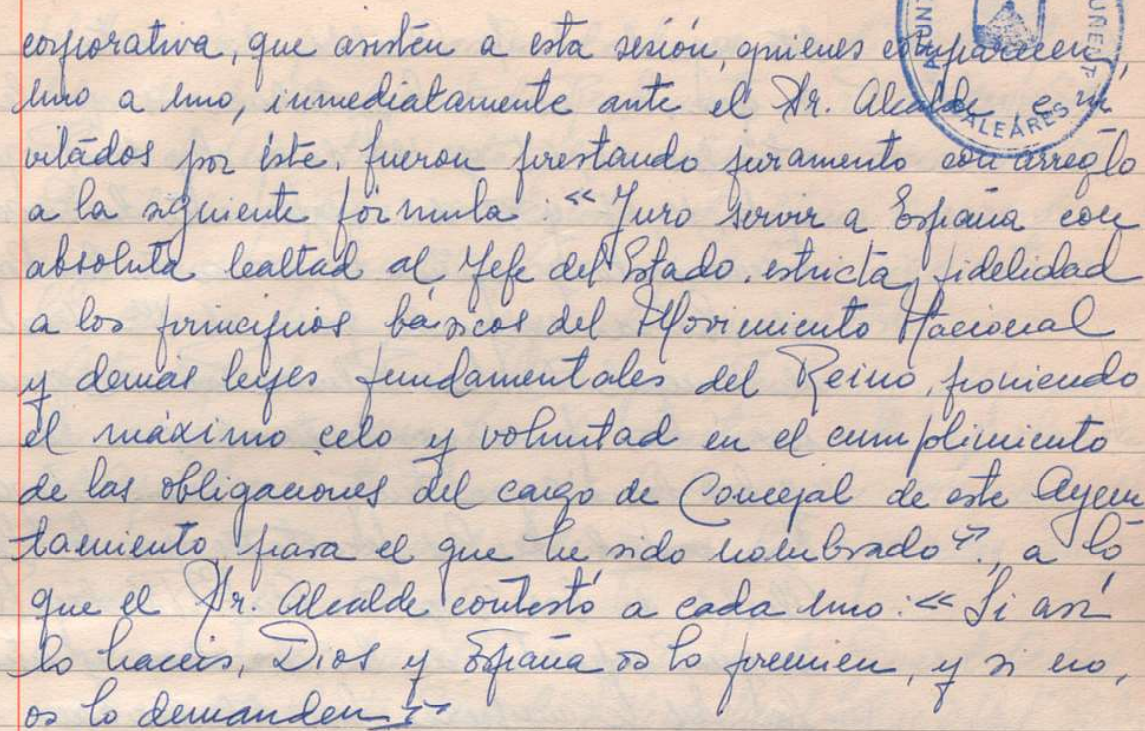 corporativa, que asisten a esta sesión, quienes comparecen,
uno a uno, inmediatamente ante el Sr. Alcalde, e in
vitados por éste, fueron prestando juramento con arreglo
a la siguiente fórmula: «Juro servir a España con
absoluta lealtad al Jefe del Estado, estricta fidelidad
a los principios básicos del Movimiento Nacional
y demás leyes fundamentales del Reino, poniendo
el máximo celo y voluntad en el cumplimiento
de las obligaciones del cargo de Concejal de este Ayun
tamiento para el que he sido nombrado», a lo
que el Sr. Alcalde contestó a cada uno: «Si así
lo haceis, Dios y España os lo premien, y si no,
os lo demanden»
BALEARES